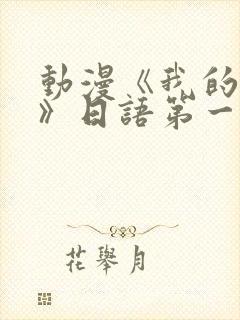 動漫《我的
》日語第一
花舉月